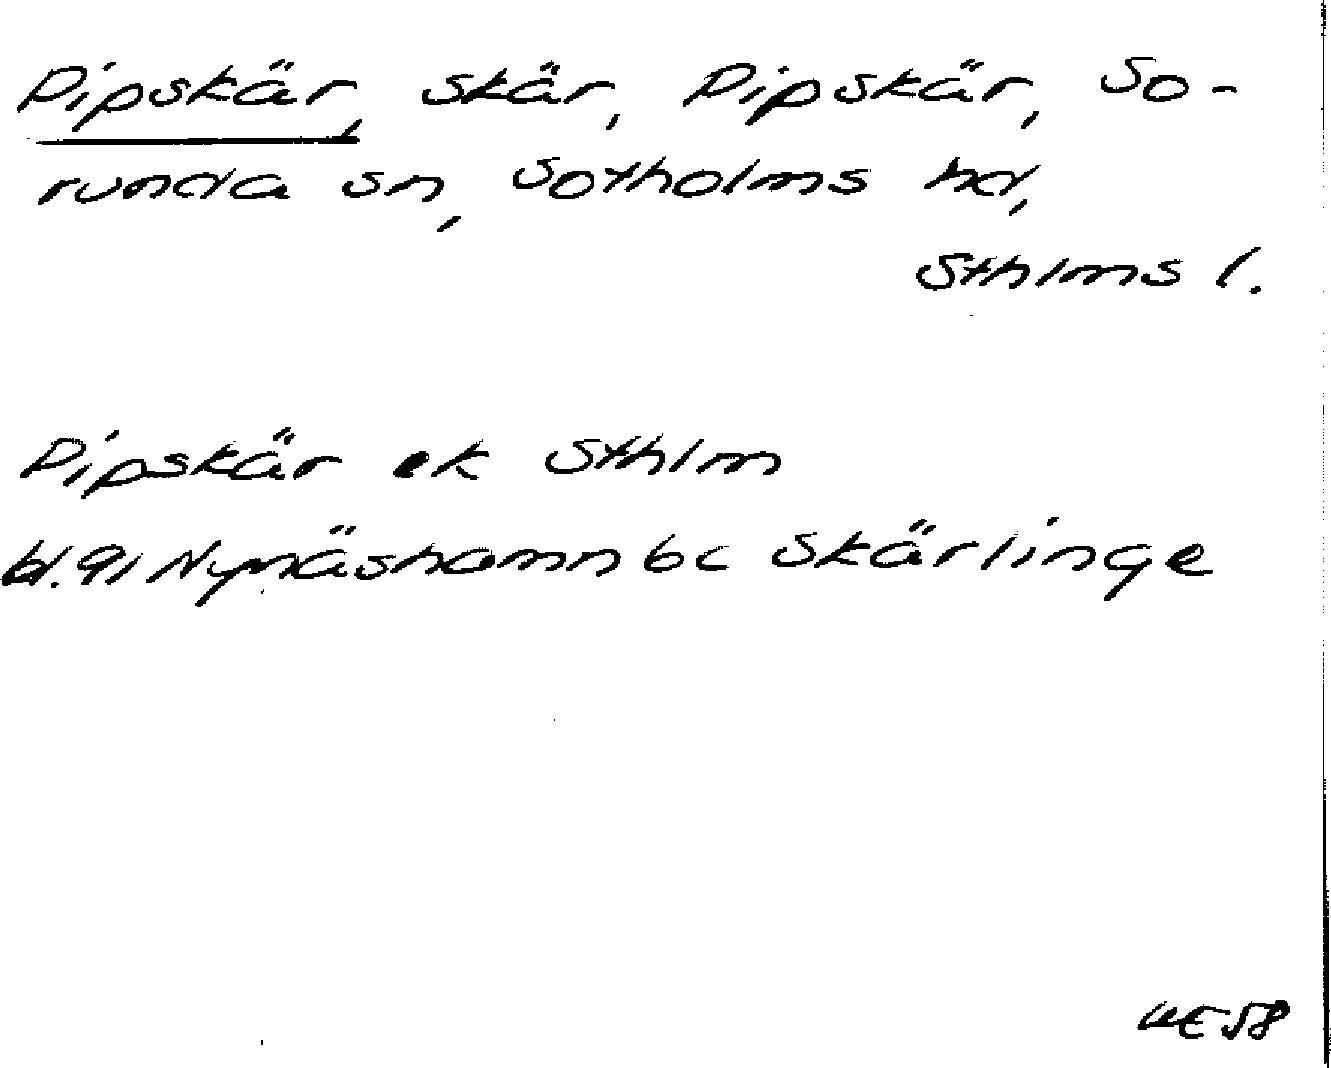 Pipskär, skär, Pipskär, So-
runda sn, Sotholms hd,
Sthlms l.
Pipskär ek Sthlm
bl. 91 Nynäshamn 6c Skärlinge
58